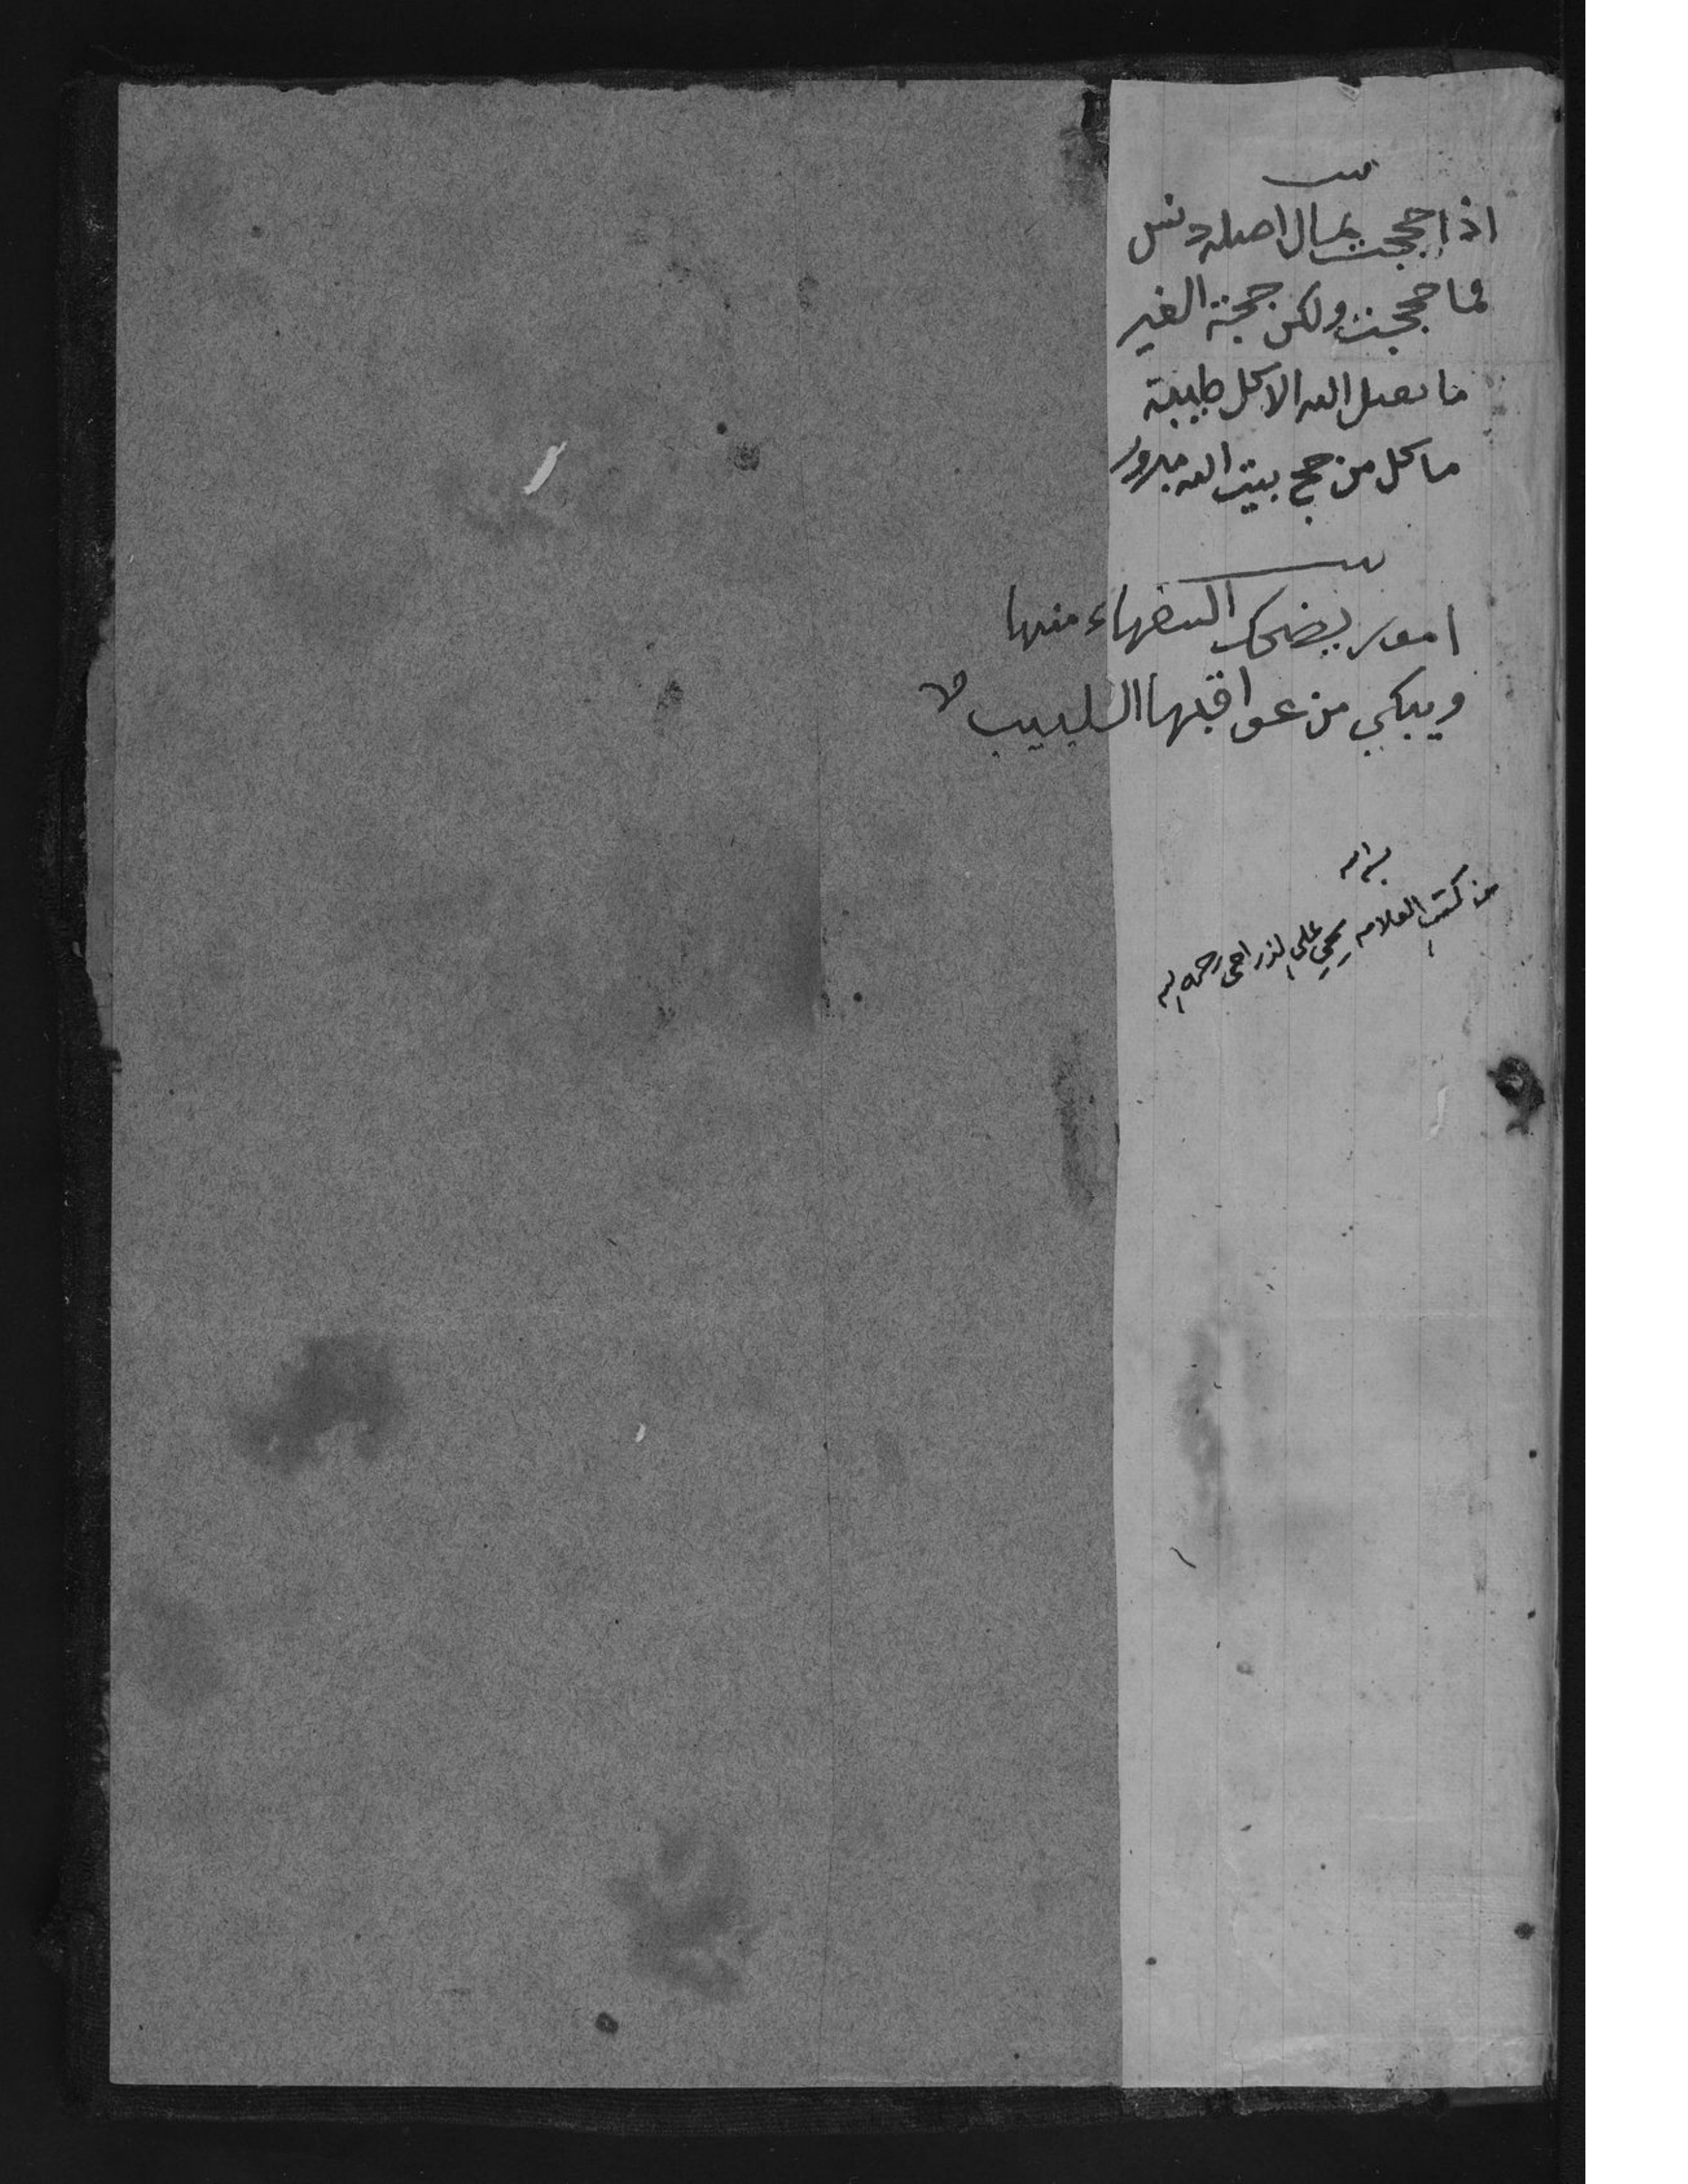 اذا حججت بمال اصله دنس
فما حججت ولكن حجة الغير
ما يقبل الله الا كل طيبة
ما كل من حج بيت الله مبرور
امور يضحك السفهاء منها
ويبكي من عواقبها اللبيب
بسم الله
من كتب العلامه يحي علي الذراحي رحمه الله